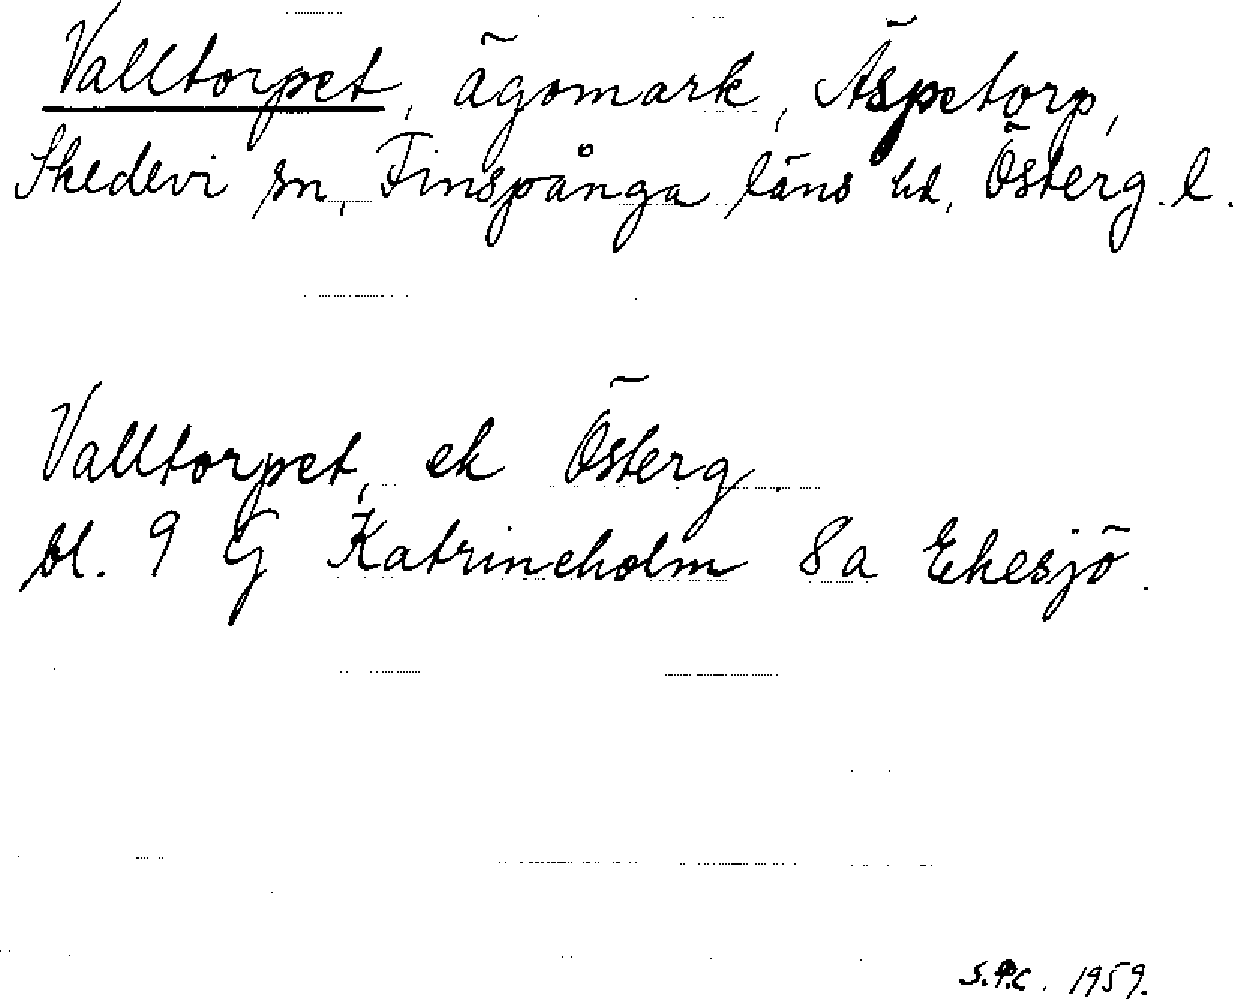 Valltorpet, ägomark, Äspetorp,
Skedevi sn, Finspånga läns hd, Österg. l.
Valltorpet, ek Österg.
bl. 9 G Katrineholm 8a Ekesjö.
S.P.C. 1959.